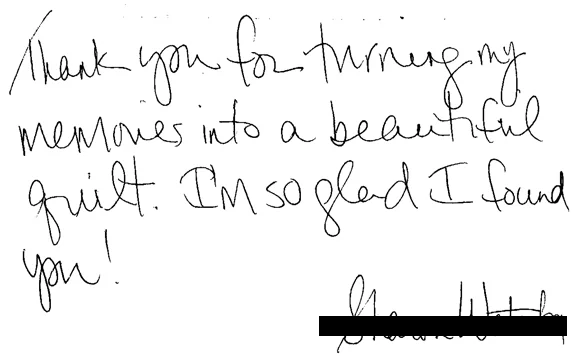 Thank you for turning my
memories into a beautiful
quilt. I'm so glad I found
you!